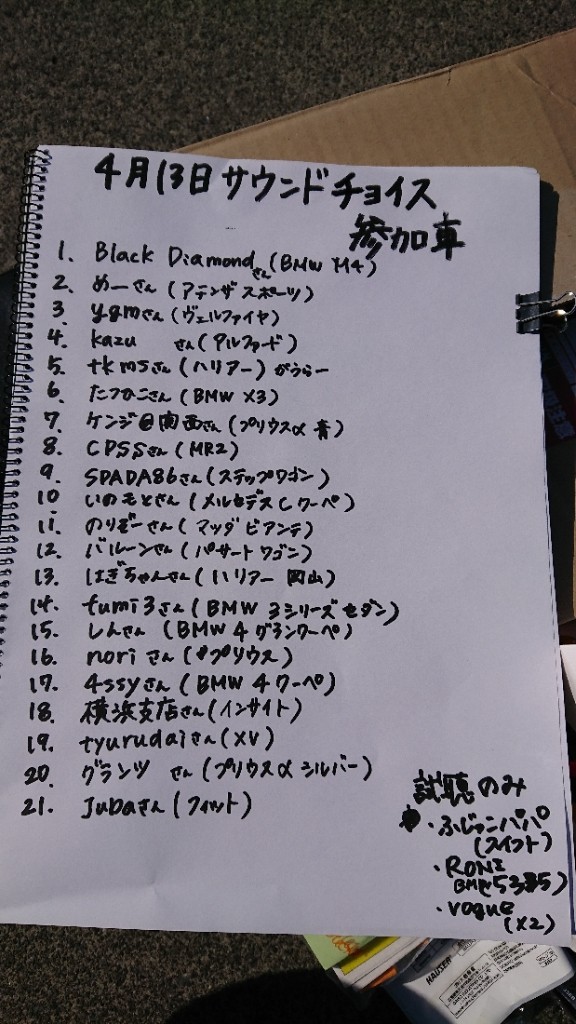 4月13日 サウンドチョイス
参加車
1. Black Diamondさん(BMW M4)
2. めーさん(アテンザスポーツ)
3 ygmさん(ヴェルファイヤ)
4. kazu さん(アルファード)
5. tkmsさん(ハリアー)がうらー
6. たつかこさん(BMW X3)
7. ケンジ@関西さん(プリウスα 青)
8. CPSSさん(MR2)
9. SPADA86さん(ステップワゴン)
10 いのもとさん(メルセデスCクーペ)
11. のりぞーさん(マツダ ビアンテ)
12. バルーンさん(パサートワゴン)
13. はぎちゃんさん(ハリアー 岡山)
14. fumi3さん(BMW 3シリーズセダン)
15. しんさん(BMW 4グランクーペ)
16. noriさん(プリウス)
17. 4ssyさん(BMW 4クーペ)
18. 横浜支店さん(インサイト)
19. tyurudaiさん(XV)
20. グランツ さん(プリウスα シルバー)
21. Jubaさん(フィット)
試聴のみ
・ふじっこパパ
(スイフト)
・RONI
BMW 535)
・vogue
(X2)
HAUSER